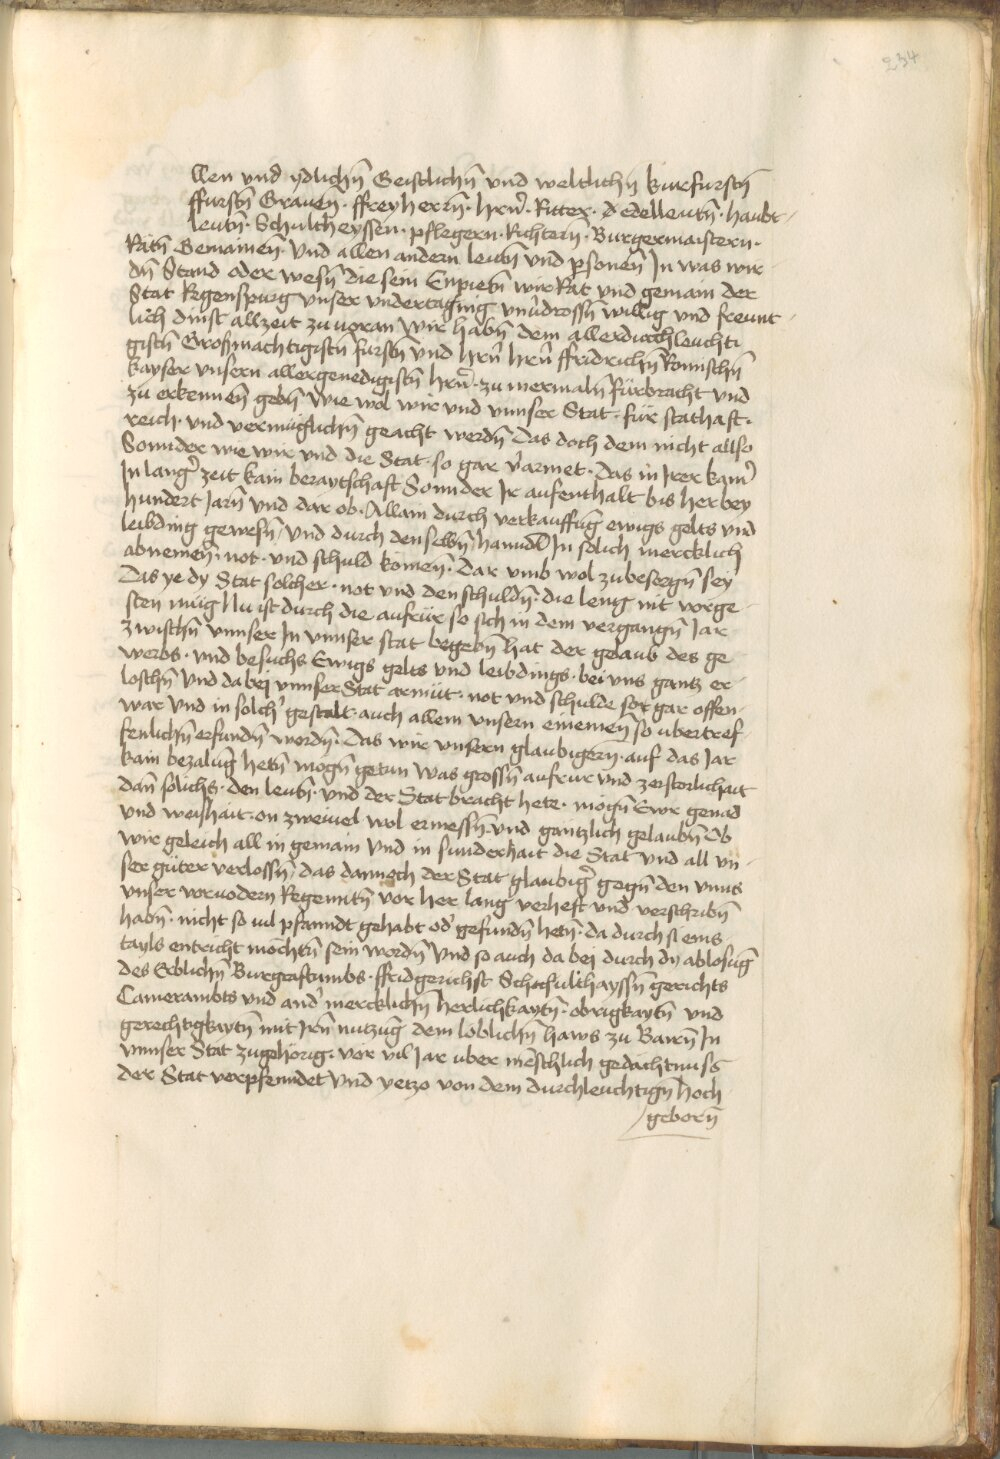 234
llen vnd ydlichn̄ Geistlichn̄ vnd weltlichn̄ kurfurstn̄
ffurstn̄ Grauen̄ · ffreyherrn̄ · hrn̄ · Ritter · edelleutn̄ · haubt-
leutn̄ · Schultheyssen · pflegern · Richtern̄ · Burgermaistern ·
Rätn̄ Gemainen̄ · Vnd allen andern leutn̄ vnd psonen̄ In was wir-
dn̄ Stand oder wesn̄ die sein Enpietn̄ wir Rat vnd gemain der
Stat Regenspurg vnser vndertanig vnūdrossn̄ willig vnd freunt-
lich dinst allzeit zuuoran Wir habn̄ dem allerdurchleuchti
gistn̄ Großmachtigistn̄ fürstn̄ vnd hrn̄ hrn̄ ffridrichn̄ Romischn̄
kayser vnsern allergenedigistn̄ hrn̄ · zu mermaln̄ fürbracht vnd
zu erkennen̄ gebn̄ Wie wol wir vnd vnnser Stat · für stathaft ·
reich · vnd vermüglichn̄ geacht werdn̄ Das doch dem nicht allso
Sonnder wie wir vnd die Stat · so gar v̄armet · das in Irer kam̄
In lanḡ zeit kain beraytschaft Sonnder Ir aufenthalt bis her bey
hundert Jarn̄ vnd dar ob · Allain durch verkauffūg ewigs gelts vnd
leibding gewesn̄ / Vnd durch denselbn̄ hanndl̄ In solich mercklich
abnemen̄ · not · vnd schuld komen̄ · Dar vmb wol zubesorgn̄ sey
Das ye dy Stat solcher · not vnd den schuldn̄ · die leng nit vorge-
sten müg Nu ist durch die aufrür so sich in dem vergangn̄ Jar
zwischn̄ vnnser In vnnser stat begebn̄ hat der gelaub des ge
werbs · vnd besuchs Ewigs gelts vnd leibdings · bei vns gantz er-
loschn̄ Vnd da bej vnnser Stat armüt · not vnd schulde so gar offen-
war Vnd in solch̄ gestalt · auch allem vnsern einemen̄ so vbertref-
fenlichn̄ erfundn̄ wordn̄ · Das wir vnsern glaubigern · auf das Jar
kain bezalūg hetn̄ mogn̄ getun Was grossn̄ aufrur vnd zerstorlichait
dan̄ solichs · den leutn̄ · vnd der Stat bracht hete · mogn̄ Ewr genad
vnd weishait · on zweiuel wol ermessn̄ · vnd gantzlich gelaubn̄ Ob
wir geleich all in gemain Vnd in sunderhait die Stat vnd all vn-
ser güter verlossn̄ / das dannoch der Stat glaubiḡ gegn̄ den vnns
vnser voruodern Regenntn̄ vor her lang verheft vnd verschribn̄
habn̄ · nicht so uil pfanndt gehabt od̄ gefundn̄ hetn̄ · da durch sy eins-
tayls entricht mochtn̄ sein wordn̄ Vnd so auch da bej durch dy ablosūg
des Erblichn̄ Burgraftumbs · ffridgerichst Schultthayssn̄ gerichts
Camerambts vnd and̄ mercklichn̄ herlichkaytn̄ · obrigkaytn̄ vnd
gerechtigkaytn̄ mit Irn̄ nutzūg dem loblichn̄ haws zu Bairn̄ In
vnnser Stat zugehörig · vor vil Jar vber mēschlich gedachtnuss
der Stat verpfenndet Vnd yetzo von dem durchleuchtign̄ hoch
geborn̄